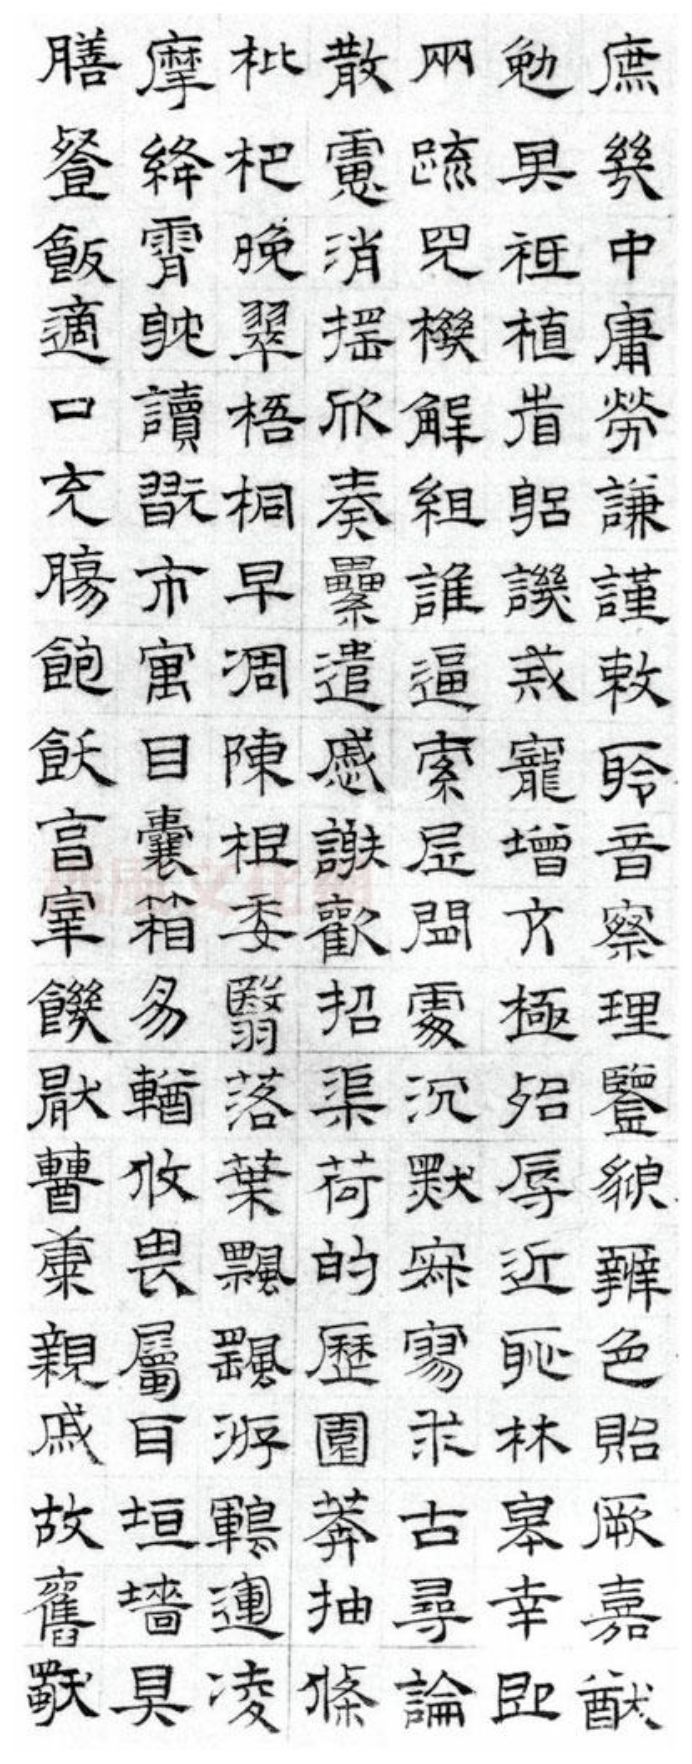 庶幾中庸勞謙謹敕聆音察理鑒貌辨色貽厥嘉猷
勉其祗植省躬譏誡寵增亢極殆辱近恥林皋幸即
兩疏見機解組誰逼索居閒處沉默寂寥求古尋論
散慮逍遙欣奏累遣慼謝歡招渠荷的歷園莽抽條
枇杷晚翠梧桐早凋陳根委翳落葉飄颻游鵾運凌
摩絳霄耽讀翫市寓目囊箱易輶攸畏屬耳垣墻具
膳餐飯適口充腸飽飫烹宰饑厭糟糠親戚故舊